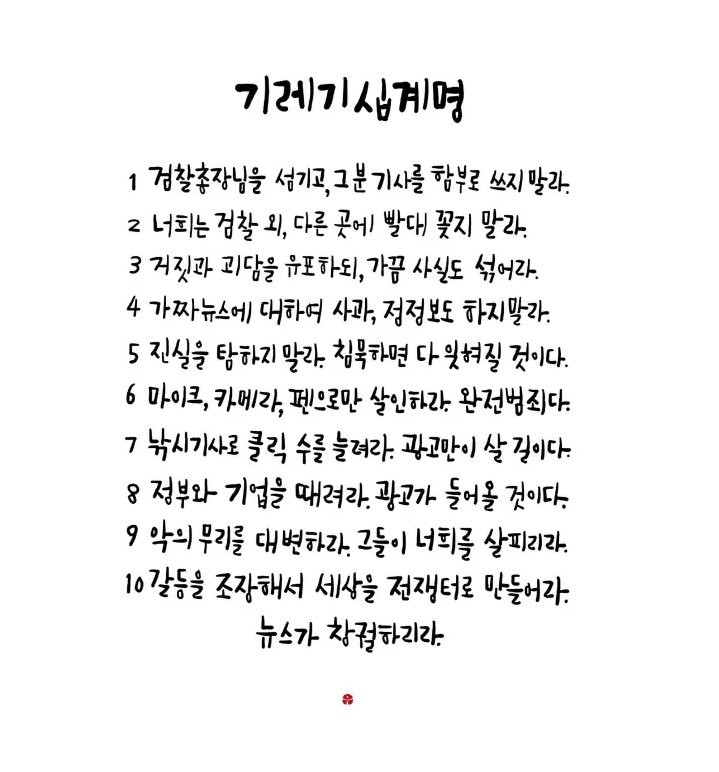 기레기십계명
1 검찰총장님을 섬기고, 그분 기사를 함부로 쓰지 말라.
2 너희는 검찰 외, 다른 곳에 빨대 꽂지 말라.
3 거짓과 괴담을 유포하되, 가끔 사실도 섞어라.
4 가짜뉴스에 대하여 사과, 정정보도 하지말라.
5 진실을 탐하지 말라. 침묵하면 다 잊혀질 것이다.
6 마이크, 카메라, 펜으로만 살인하라. 완전범죄다.
7 낚시기사로 클릭 수를 늘려라. 광고만이 살 길이다.
8 정부와 기업을 때려라. 광고가 들어올 것이다.
9 악의 무리를 대변하라. 그들이 너희를 살피리라.
10 갈등을 조장해서 세상을 전쟁터로 만들어라.
뉴스가 창궐하리라.